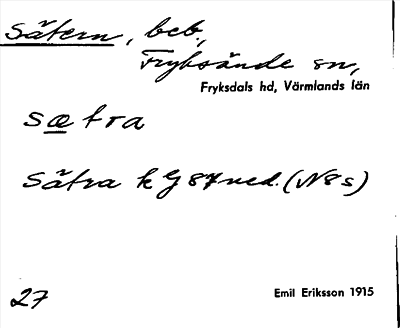 Sätern, beb.,
Fryksände sn,
Fryksdals hd, Värmlands län
sætra
Sätra k G 87 ned. (N8s)
27
Emil Eriksson 1915